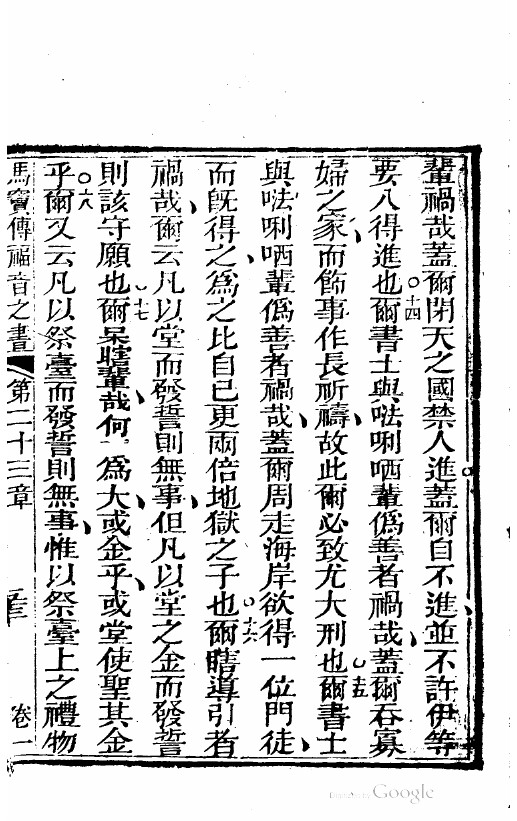 輩禍哉蓋爾閉天之國禁人進蓋爾自不進並不許伊等
要入得進也○十四爾書士與㗫唎哂輩偽善者禍哉蓋爾吞寡
婦之家而飾事作長祈禱故此爾必致尤大刑也○十五爾書士
與㗫唎哂輩偽善者禍哉蓋爾周走海岸欲得一位門徒
而既得之為之比自己更兩倍地獄之子也○十六爾瞎導引者
禍哉爾云凡以堂而發誓則無事但凡以堂之金而發誓
則該守願也○十七爾呆瞎輩哉何為大或金乎或堂使聖其金
乎○十八爾又云凡以祭臺而發誓則無事惟以祭臺上之禮物
馬竇傳福音之書 第二十三章 卷一
Google